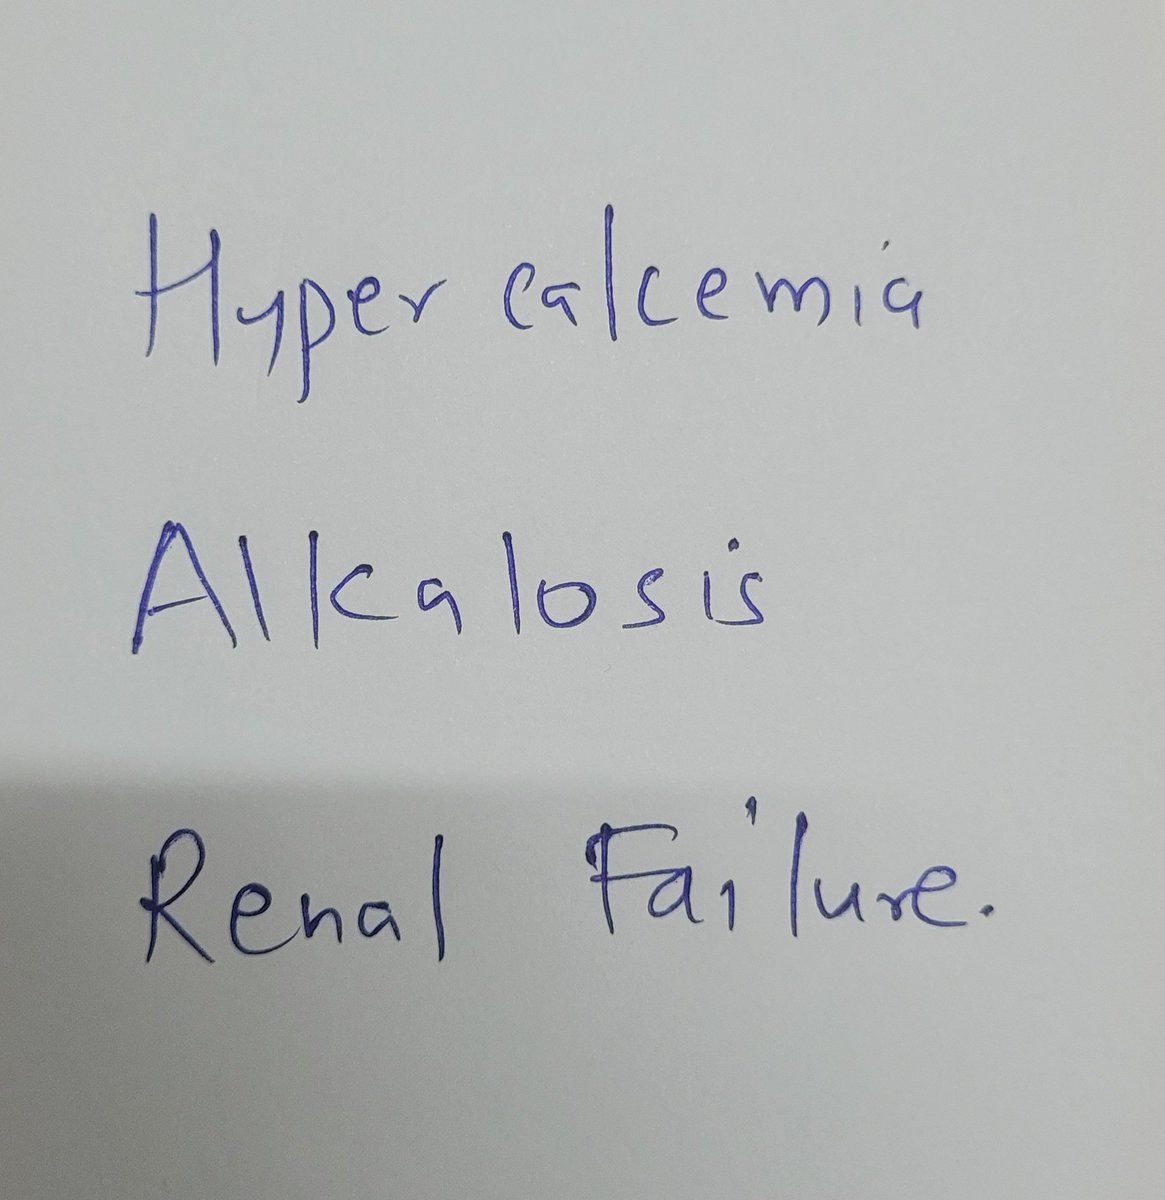 Hyper calcemia
Alkalosis
Renal Failure.